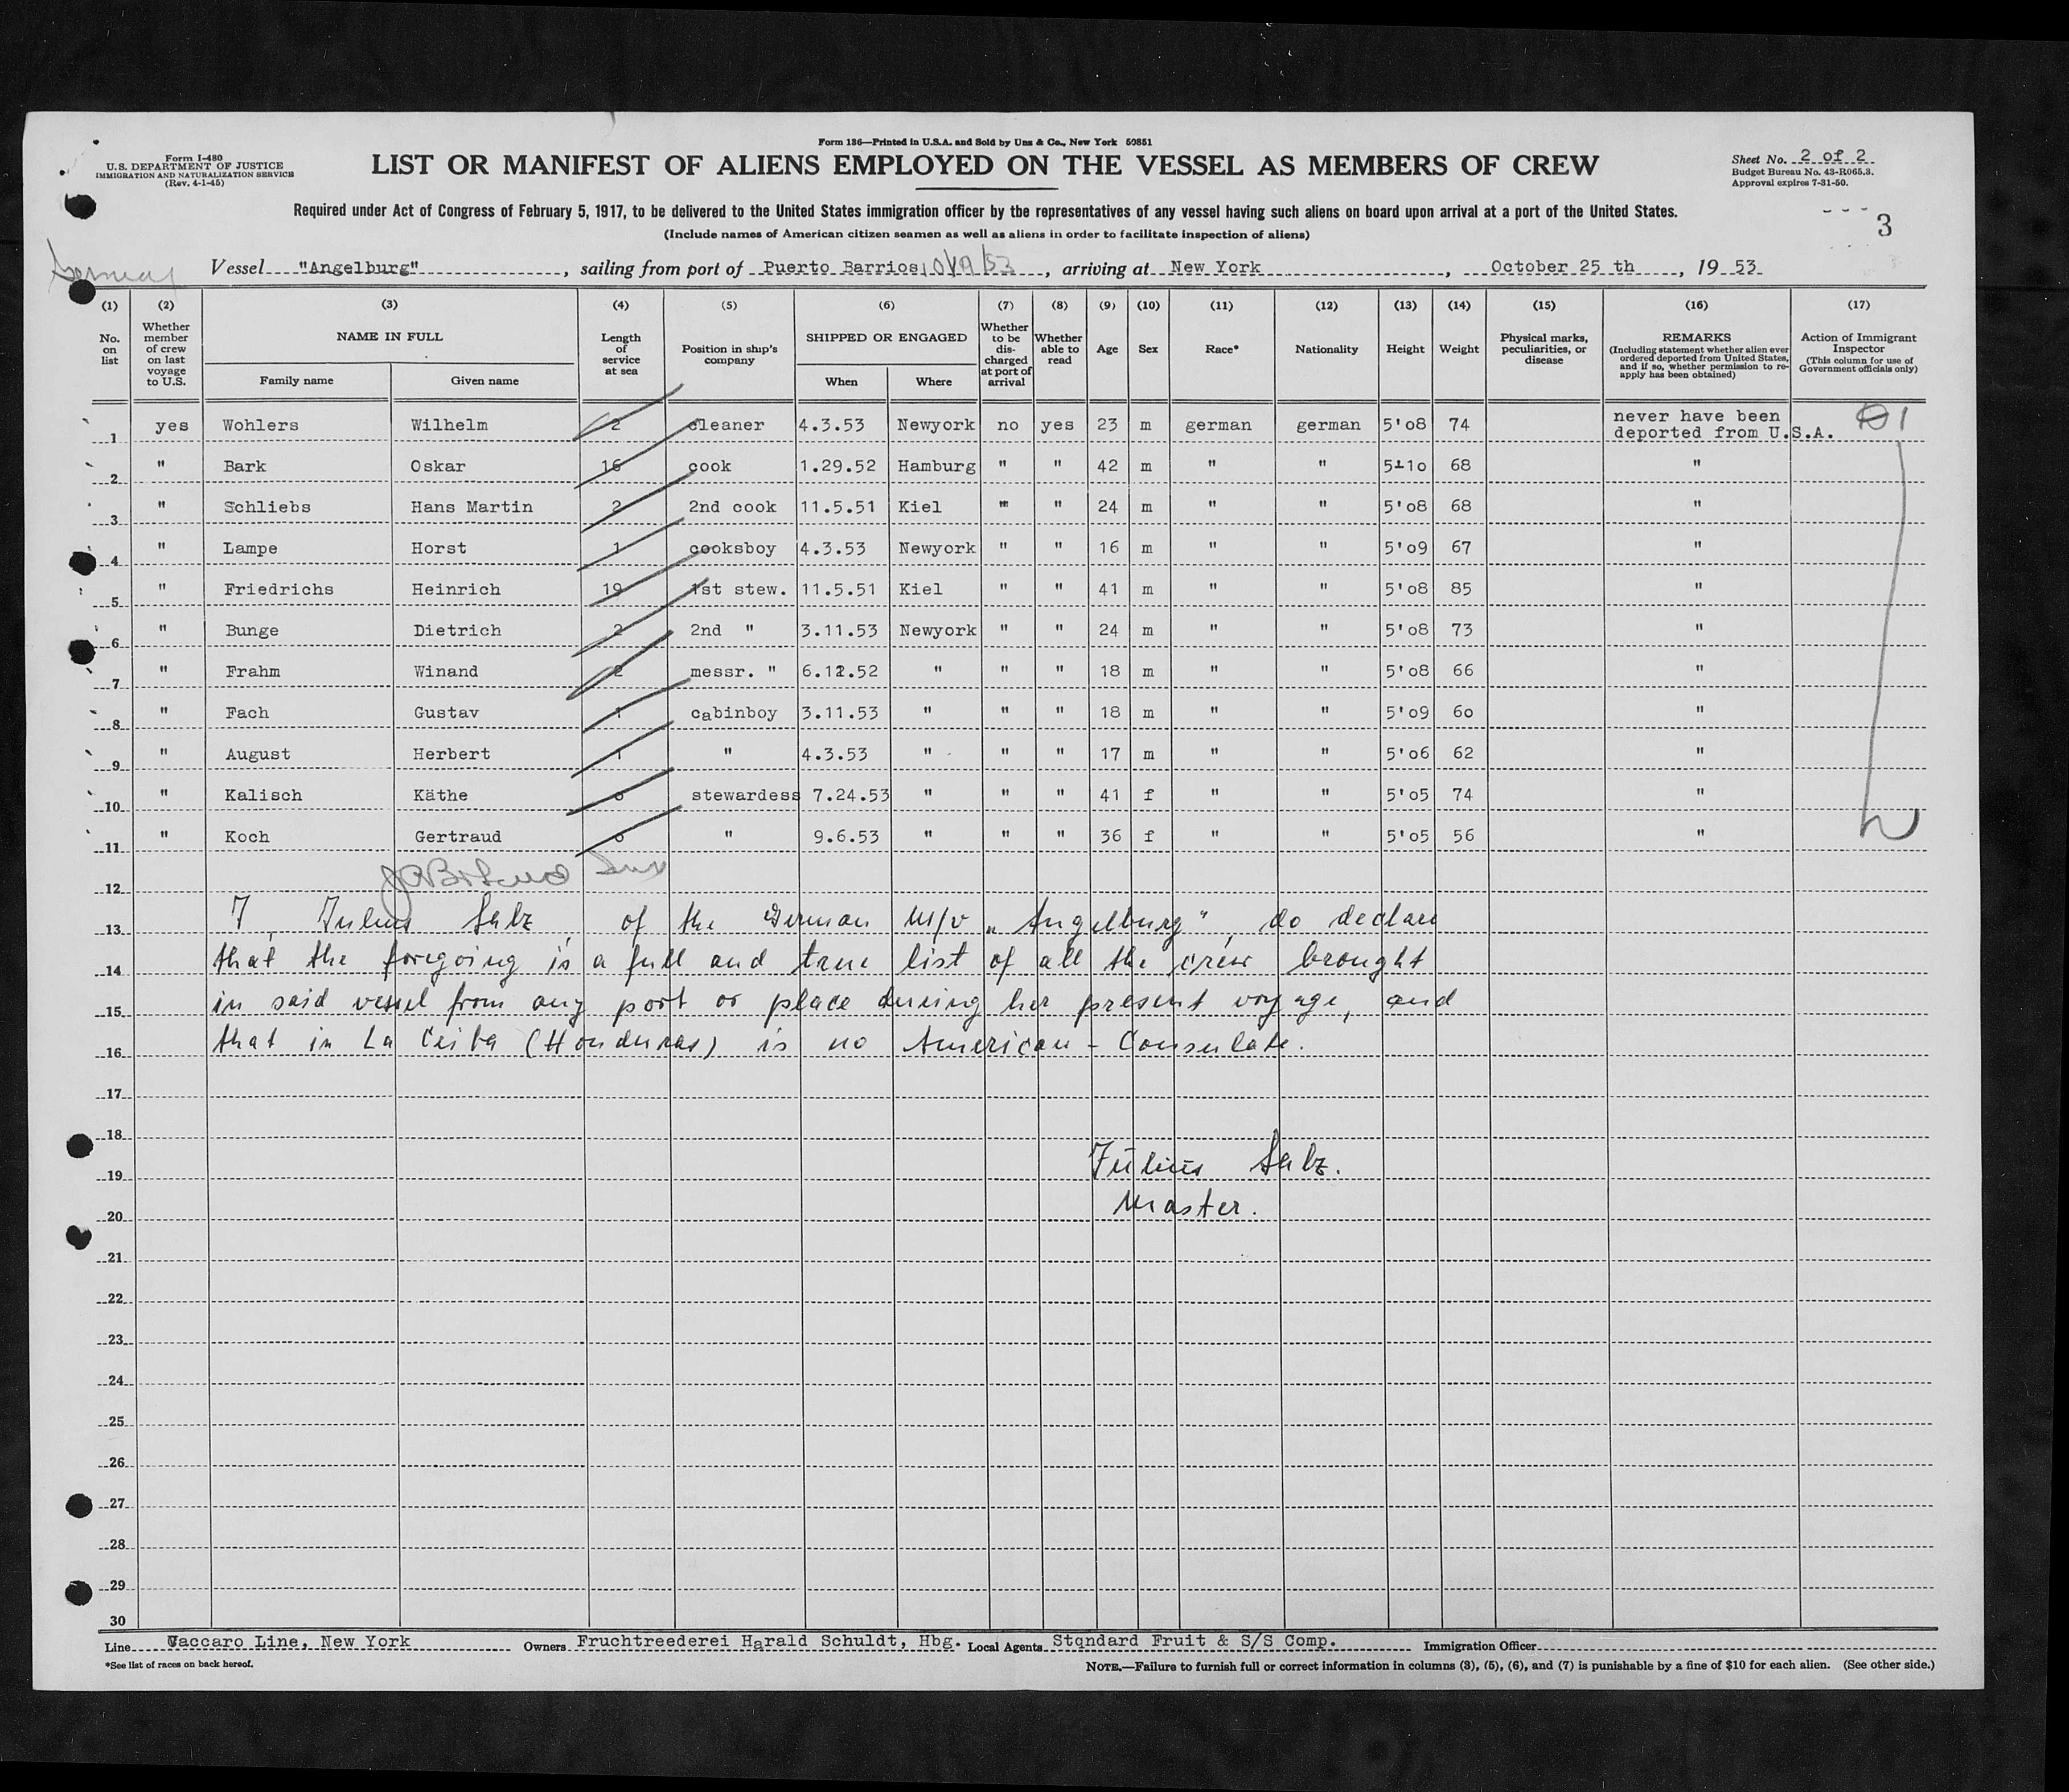 Form 136—Printed in U.S.A. and Sold by Unz & Co., New York 50851
Form I-480
U.S. DEPARTMENT OF JUSTICE
IMMIGRATION AND NATURALIZATION SERVICE
(Rev. 4-1-45)
LIST OR MANIFEST OF ALIENS EMPLOYED ON THE VESSEL AS MEMBERS OF CREW
Sheet No. 2 of 2
Budget Bureau No. 43-R065.3.
Approval expires 7-31-50.
Required under Act of Congress of February 5, 1917, to be delivered to the United States immigration officer by the representatives of any vessel having such aliens on board upon arrival at a port of the United States.
3
(Include names of American citizen seamen as well as aliens in order to facilitate inspection of aliens)
Germany
Vessel "Angelburg", sailing from port of Puerto Barrios 10/19/53, arriving at New York, October 25 th, 19 53
(1) (2) (3) (4) (5) (6) (7) (8) (9) (10) (11) (12) (13) (14) (15) (16) (17)
No. on list
Whether member of crew on last voyage to U.S.
NAME IN FULL
Family name
Given name
Length of service at sea
Position in ship's company
SHIPPED OR ENGAGED
When
Where
Whether to be discharged at port of arrival
Whether able to read
Age
Sex
Race*
Nationality
Height
Weight
Physical marks, peculiarities, or disease
REMARKS
(Including statement whether alien ever ordered deported from United States, and if so, whether permission to re-apply has been obtained)
Action of Immigrant Inspector
(This column for use of Government officials only)
1 yes Wohlers Wilhelm 2 cleaner 4.3.53 Newyork no yes 23 m german german 5'08 74 never have been deported from U.S.A.
2 " Bark Oskar 16 cook 1.29.52 Hamburg " " 42 m " " 5'10 68 "
3 " Schliebs Hans Martin 2 2nd cook 11.5.51 Kiel " " 24 m " " 5'08 68 "
4 " Lampe Horst 1 cooksboy 4.3.53 Newyork " " 16 m " " 5'09 67 "
5 " Friedrichs Heinrich 19 1st stew. 11.5.51 Kiel " " 41 m " " 5'08 85 "
6 " Bunge Dietrich 2 2nd " 3.11.53 Newyork " " 24 m " " 5'08 73 "
7 " Frahm Winand 2 messr. " 6.12.52 " " " 18 m " " 5'08 66 "
8 " Fach Gustav 1 cabinboy 3.11.53 " " " 18 m " " 5'09 60 "
9 " August Herbert 1 " 4.3.53 " " " 17 m " " 5'06 62 "
10 " Kalisch Käthe stewardess 7.24.53 " " " 41 f " " 5'05 74 "
11 " Koch Gertraud " 9.6.53 " " " 36 f " " 5'05 56 "
12
13 I, Julius Salz, of the German M/v „Angelburg", do declare
14 that the foregoing is a full and true list of all the crew brought
15 in said vessel from any port or place during her present voyage, and
16 that in La Ceiba (Honduras) is no American-Consulate.
17
18
19 Julius Salz.
20 Master.
21
22
23
24
25
26
27
28
29
30
Line Vaccaro Line, New York Owners Fruchtreederei Harald Schuldt, Hbg. Local Agents Stqndard Fruit & S/S Comp. Immigration Officer
*See list of races on back hereof.
NOTE.—Failure to furnish full or correct information in columns (3), (5), (6), and (7) is punishable by a fine of $10 for each alien. (See other side.)